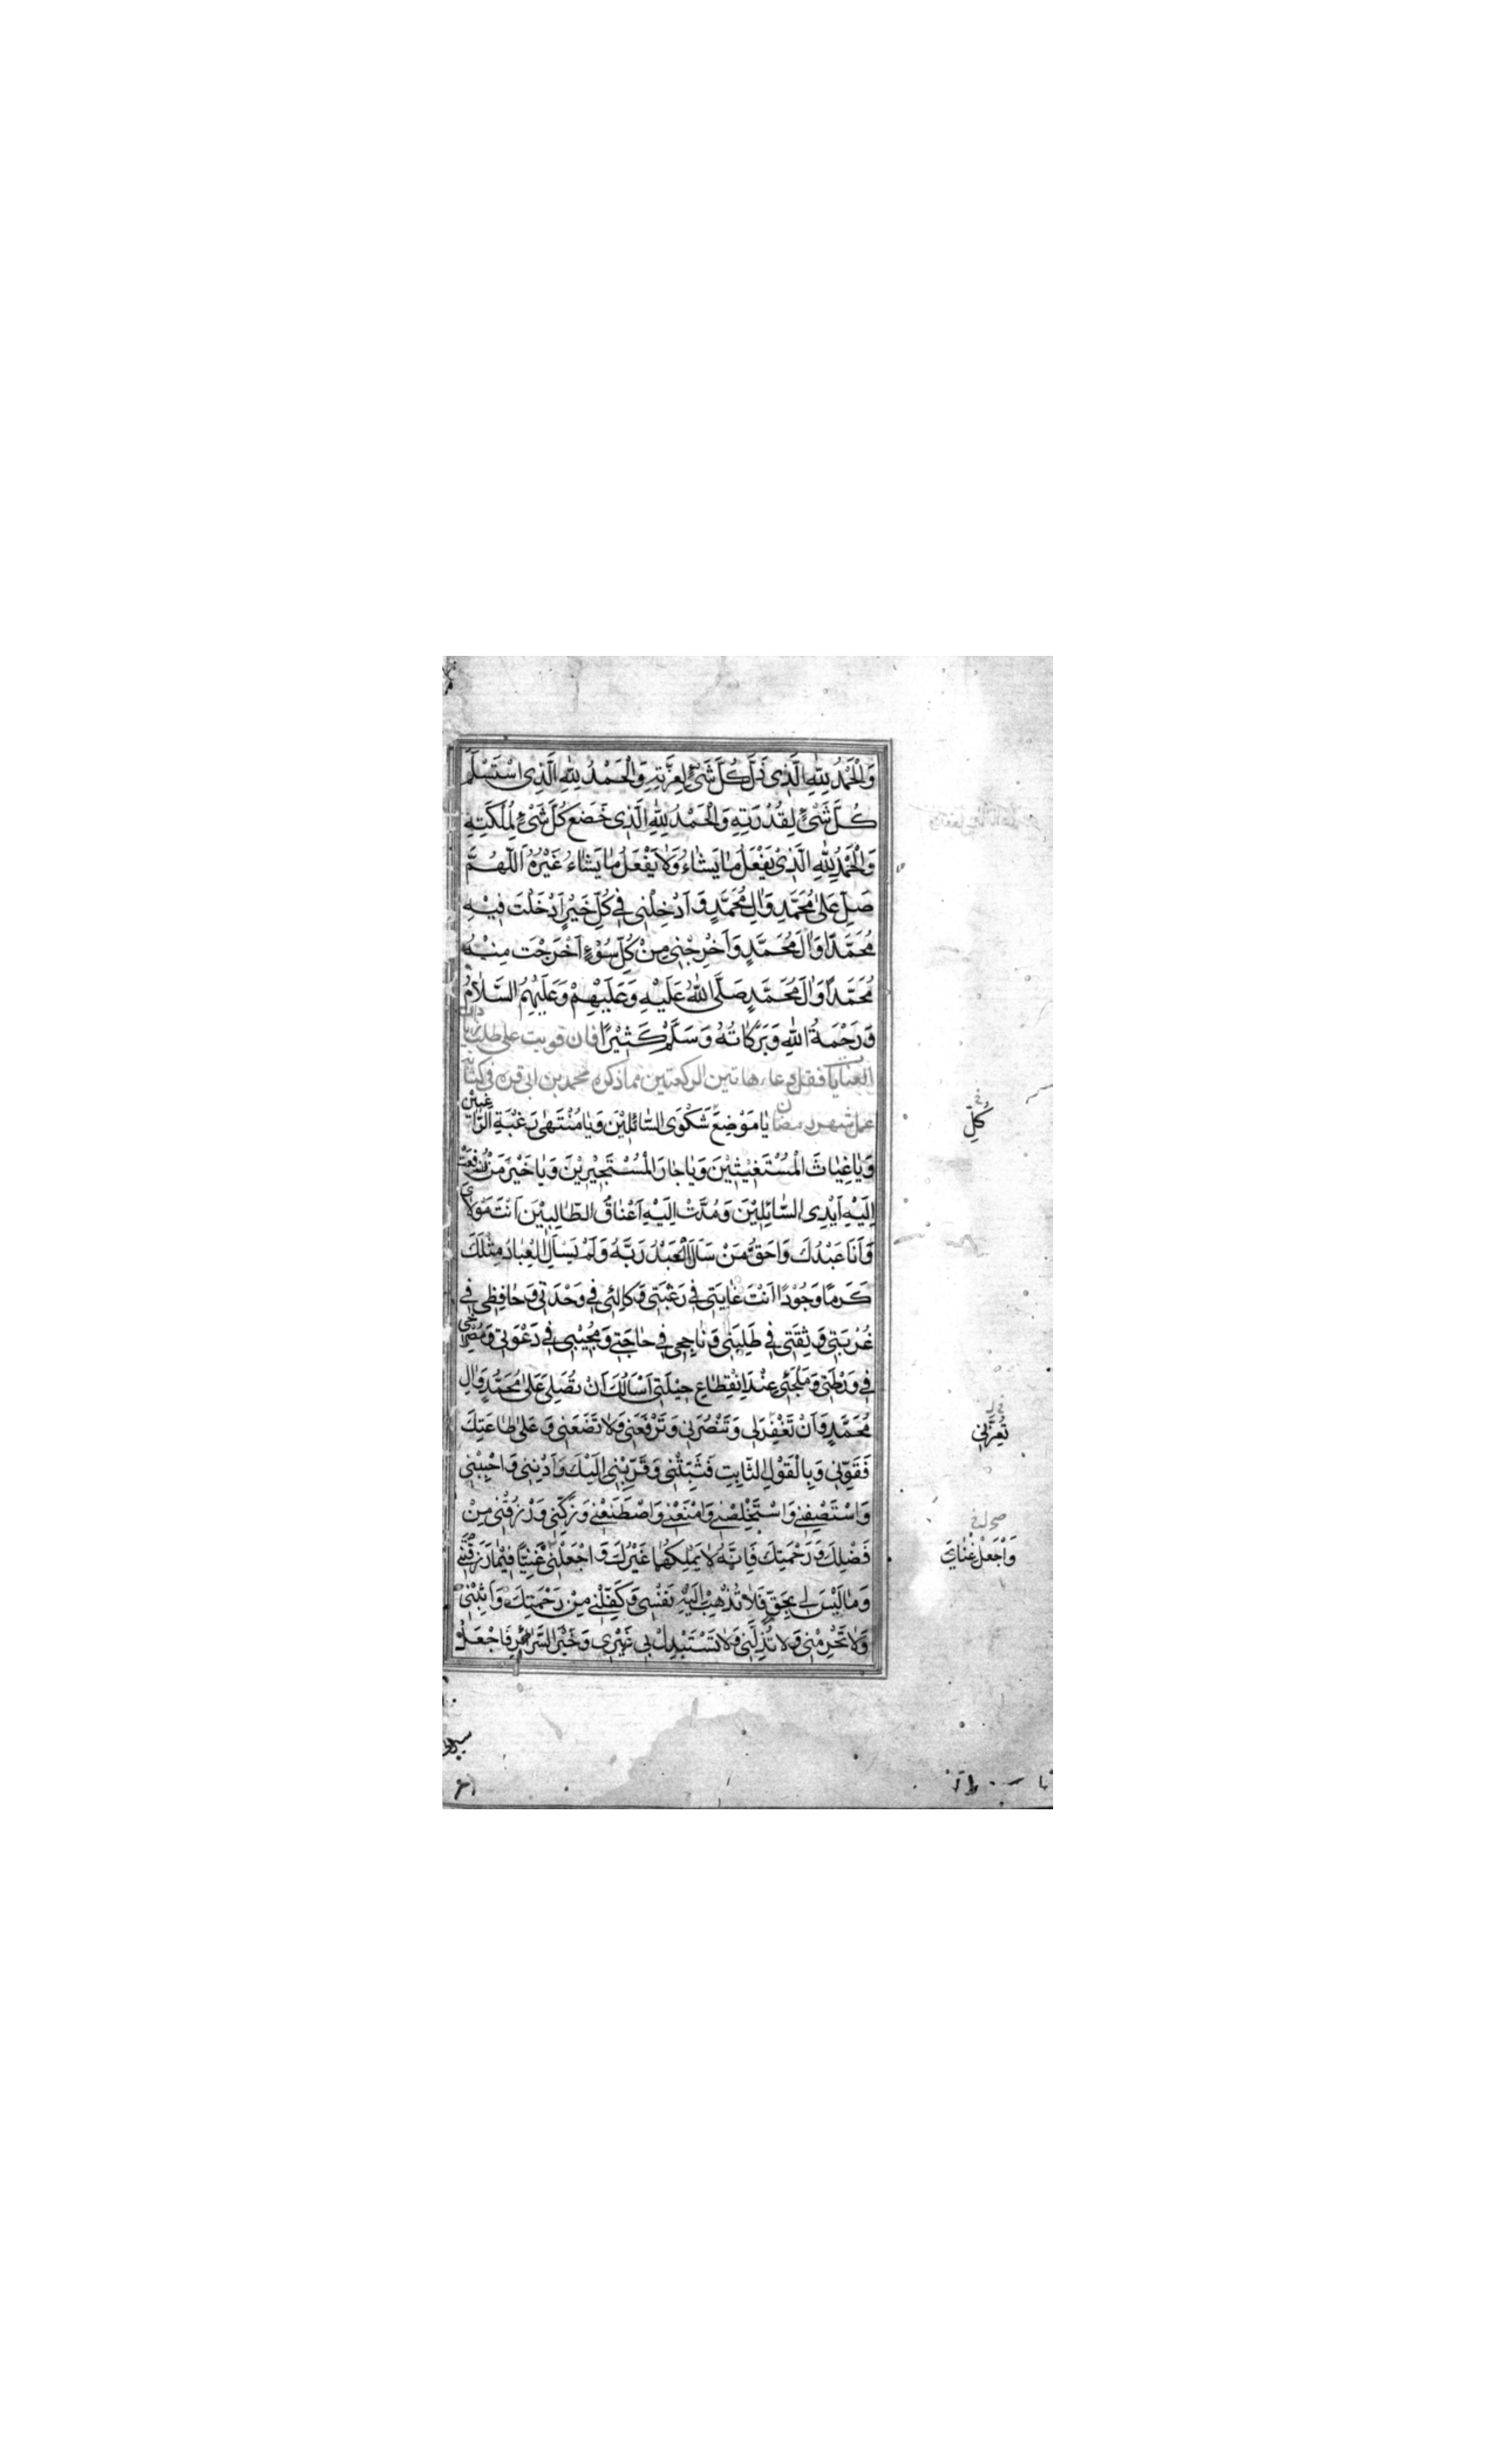 وَالْحَمْدُ لِلّٰهِ الَّذِى ذَلَّ كُلُّ شَىْءٍ لِعِزَّتِهِ وَالْحَمْدُ لِلّٰهِ الَّذِى اسْتَسْلَمَ
كُلُّ شَىْءٍ لِقُدْرَتِهِ وَالْحَمْدُ لِلّٰهِ الَّذِى خَضَعَ كُلُّ شَىْءٍ لِمُلْكَتِهِ
وَالْحَمْدُ لِلّٰهِ الَّذِىْ يَفْعَلُ مٰا يَشٰاءُ وَلٰا يَفْعَلُ مٰا يَشٰاءُ غَيْرُهُ اَللّٰهُمَّ
صَلِّ عَلىٰ مُحَمَّدٍ وَاٰلِ مُحَمَّدٍ وَاَدْخِلْنِى فِى كُلِّ خَيْرٍ اَدْخَلْتَ فِيْهِ
مُحَمَّدًا وَاٰلَ مُحَمَّدٍ وَاَخْرِجْنِى مِنْ كُلِّ سُوْءٍ اَخْرَجْتَ مِنْهُ
مُحَمَّدًا وَاٰلَ مُحَمَّدٍ صَلَّى اللّٰهُ عَلَيْهِ وَعَلَيْهِمْ وَعَلَيْهِمُ السَّلٰامُ
وَرَحْمَةُ اللّٰهِ وَبَرَكَاتُهُ وَسَلَّمَ كَثِيْرًا فان قويت على طلب زيادات
العنايات فقل دعاء هاتين الركعتين مما ذكره محمد بن ابى قرة فى كتابه
عمل شهر رمضان يٰا مَوْضِعَ شَكْوَى السّٰائِلِيْنَ وَيٰا مُنْتَهىٰ رَغْبَةِ الرّٰاغِبِيْنَ
وَيٰا غِيٰاثَ الْمُسْتَغِيْثِيْنَ وَيٰا جٰارَ الْمُسْتَجِيْرِيْنَ وَيٰا خَيْرَ مَنْ رُفِعَتْ
اِلَيْهِ اَيْدِى السّٰائِلِيْنَ وَمُدَّتْ اِلَيْهِ اَعْنٰاقُ الطّٰالِبِيْنَ اَنْتَ مَوْلاٰىَ
وَاَنَا عَبْدُكَ وَاَحَقُّ مَنْ سَاَلَ الْعَبْدُ رَبَّهُ وَلَمْ يَسْاَلِ الْعِبٰادُ مِثْلَكَ
كَرَمًا وَجُوْدًا اَنْتَ غٰايَتِى فِى رَغْبَتِى وَكٰالِئِى فِى وَحْدَتِى وَحٰافِظِى فِى
غُرْبَتِى وَثِقَتِى فِى طَلِبَتِى وَنٰاجِحِى فِى حٰاجَتِى وَمُجِيْبِى فِى دَعْوَتِى وَمُصْرِخِى
فِى وَرْطَتِى وَمَلْجَئِى عِنْدَ انْقِطٰاعِ حِيْلَتِى اَسْاَلُكَ اَنْ تُصَلِّىَ عَلىٰ مُحَمَّدٍ وَاٰلِ
مُحَمَّدٍ وَاَنْ تَغْفِرَ لِى وَتَنْصُرَنِى وَتَرْفَعَنِى وَلاٰ تَضَعَنِى وَعَلىٰ طٰاعَتِكَ
فَقَوِّنِى وَبِالْقَوْلِ الثّٰابِتِ فَثَبِّتْنِى وَقَرِّبْنِى اِلَيْكَ وَاَدْنِنِى وَاَحْبِبْنِى
وَاسْتَصْفِنِى وَاسْتَخْلِصْنِى وَامْنَعْنِى وَاصْطَنِعْنِى وَزَكِّنِى وَارْزُقْنِى مِنْ
فَضْلِكَ وَرَحْمَتِكَ فَاِنَّهُ لاٰ يَمْلِكُهٰا غَيْرُكَ وَاجْعَلْنِى غَنِيًّا فِيْمٰا رَزَقْتَنِى
وَمٰا لَيْسَ لِى بِحَقٍّ فَلاٰ تُذْهِبْ اِلَيْهِ نَفْسِى وَكِفْلَيْنِ مِنْ رَحْمَتِكَ وَاٰتِنِى
وَلاٰ تَحْرِمْنِى وَلاٰ تُذِلَّنِى وَلاٰ تَسْتَبْدِلْ بِى غَيْرِى وَخَيْرَ السَّرٰائِرِ فَاجْعَلْ
كُلِّ
تُعِزَّنِى
وَاجْعَلْ غِنٰاىَ